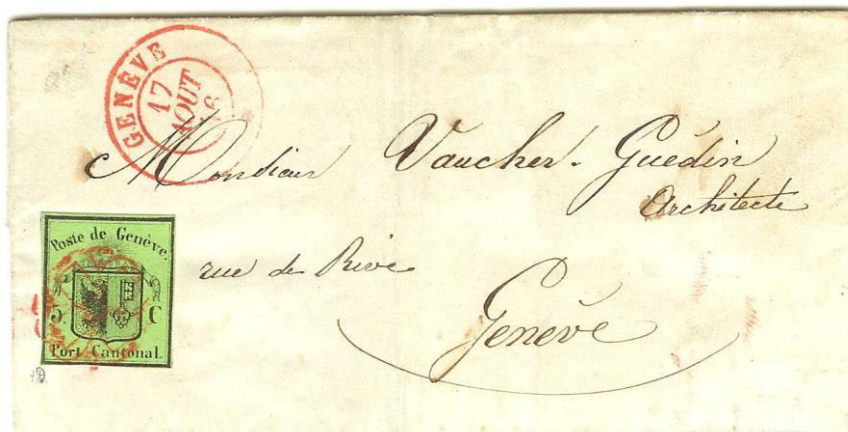 GENÈVE
17
AOUT
46
Monsieur Vaucher-Guédin
Architecte
rue de Rive
Genève
Poste de Genève.
5 C
Port Cantonal.